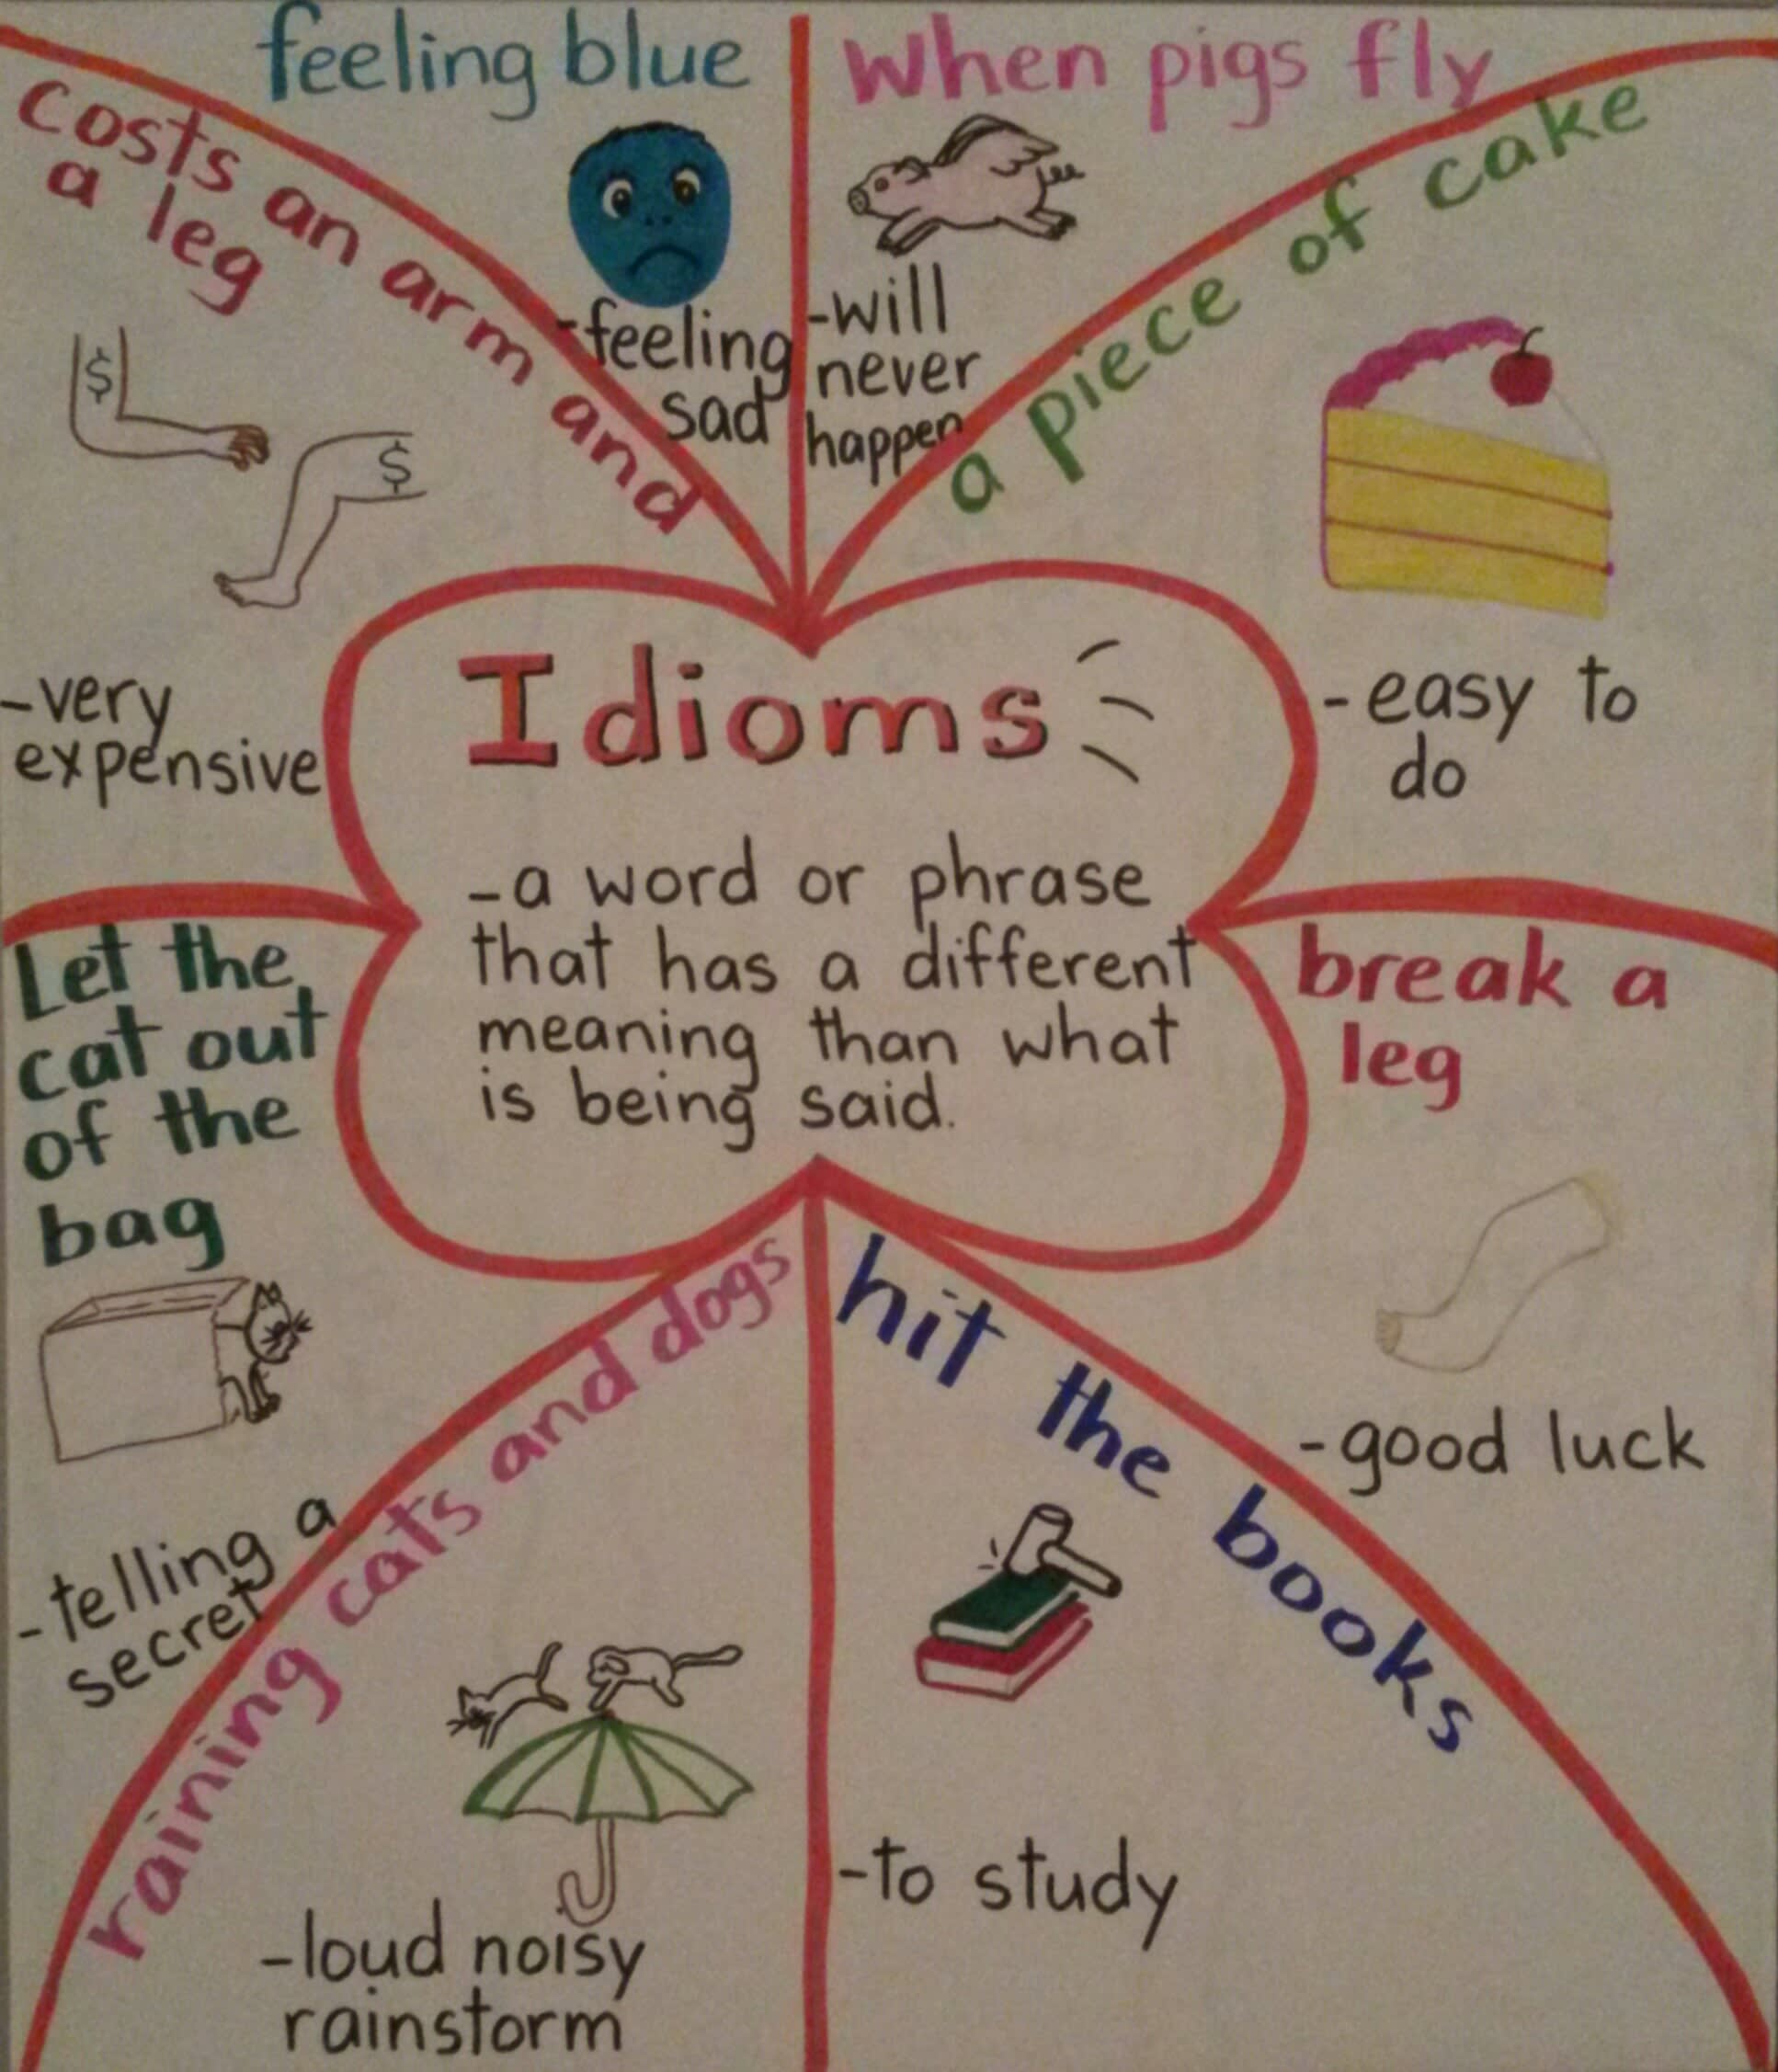 feeling blue
-feeling
sad
When pigs fly
-will
never
happen
costs an arm and
a leg
$
$
-very
expensive
a piece of cake
-easy to
do
Idioms
-a word or phrase
that has a different
meaning than what
is being said.
Let the
cat out
of the
bag
-telling a
secret
break a
leg
-good luck
raining cats and dogs
-loud noisy
rainstorm
hit the books
-to study